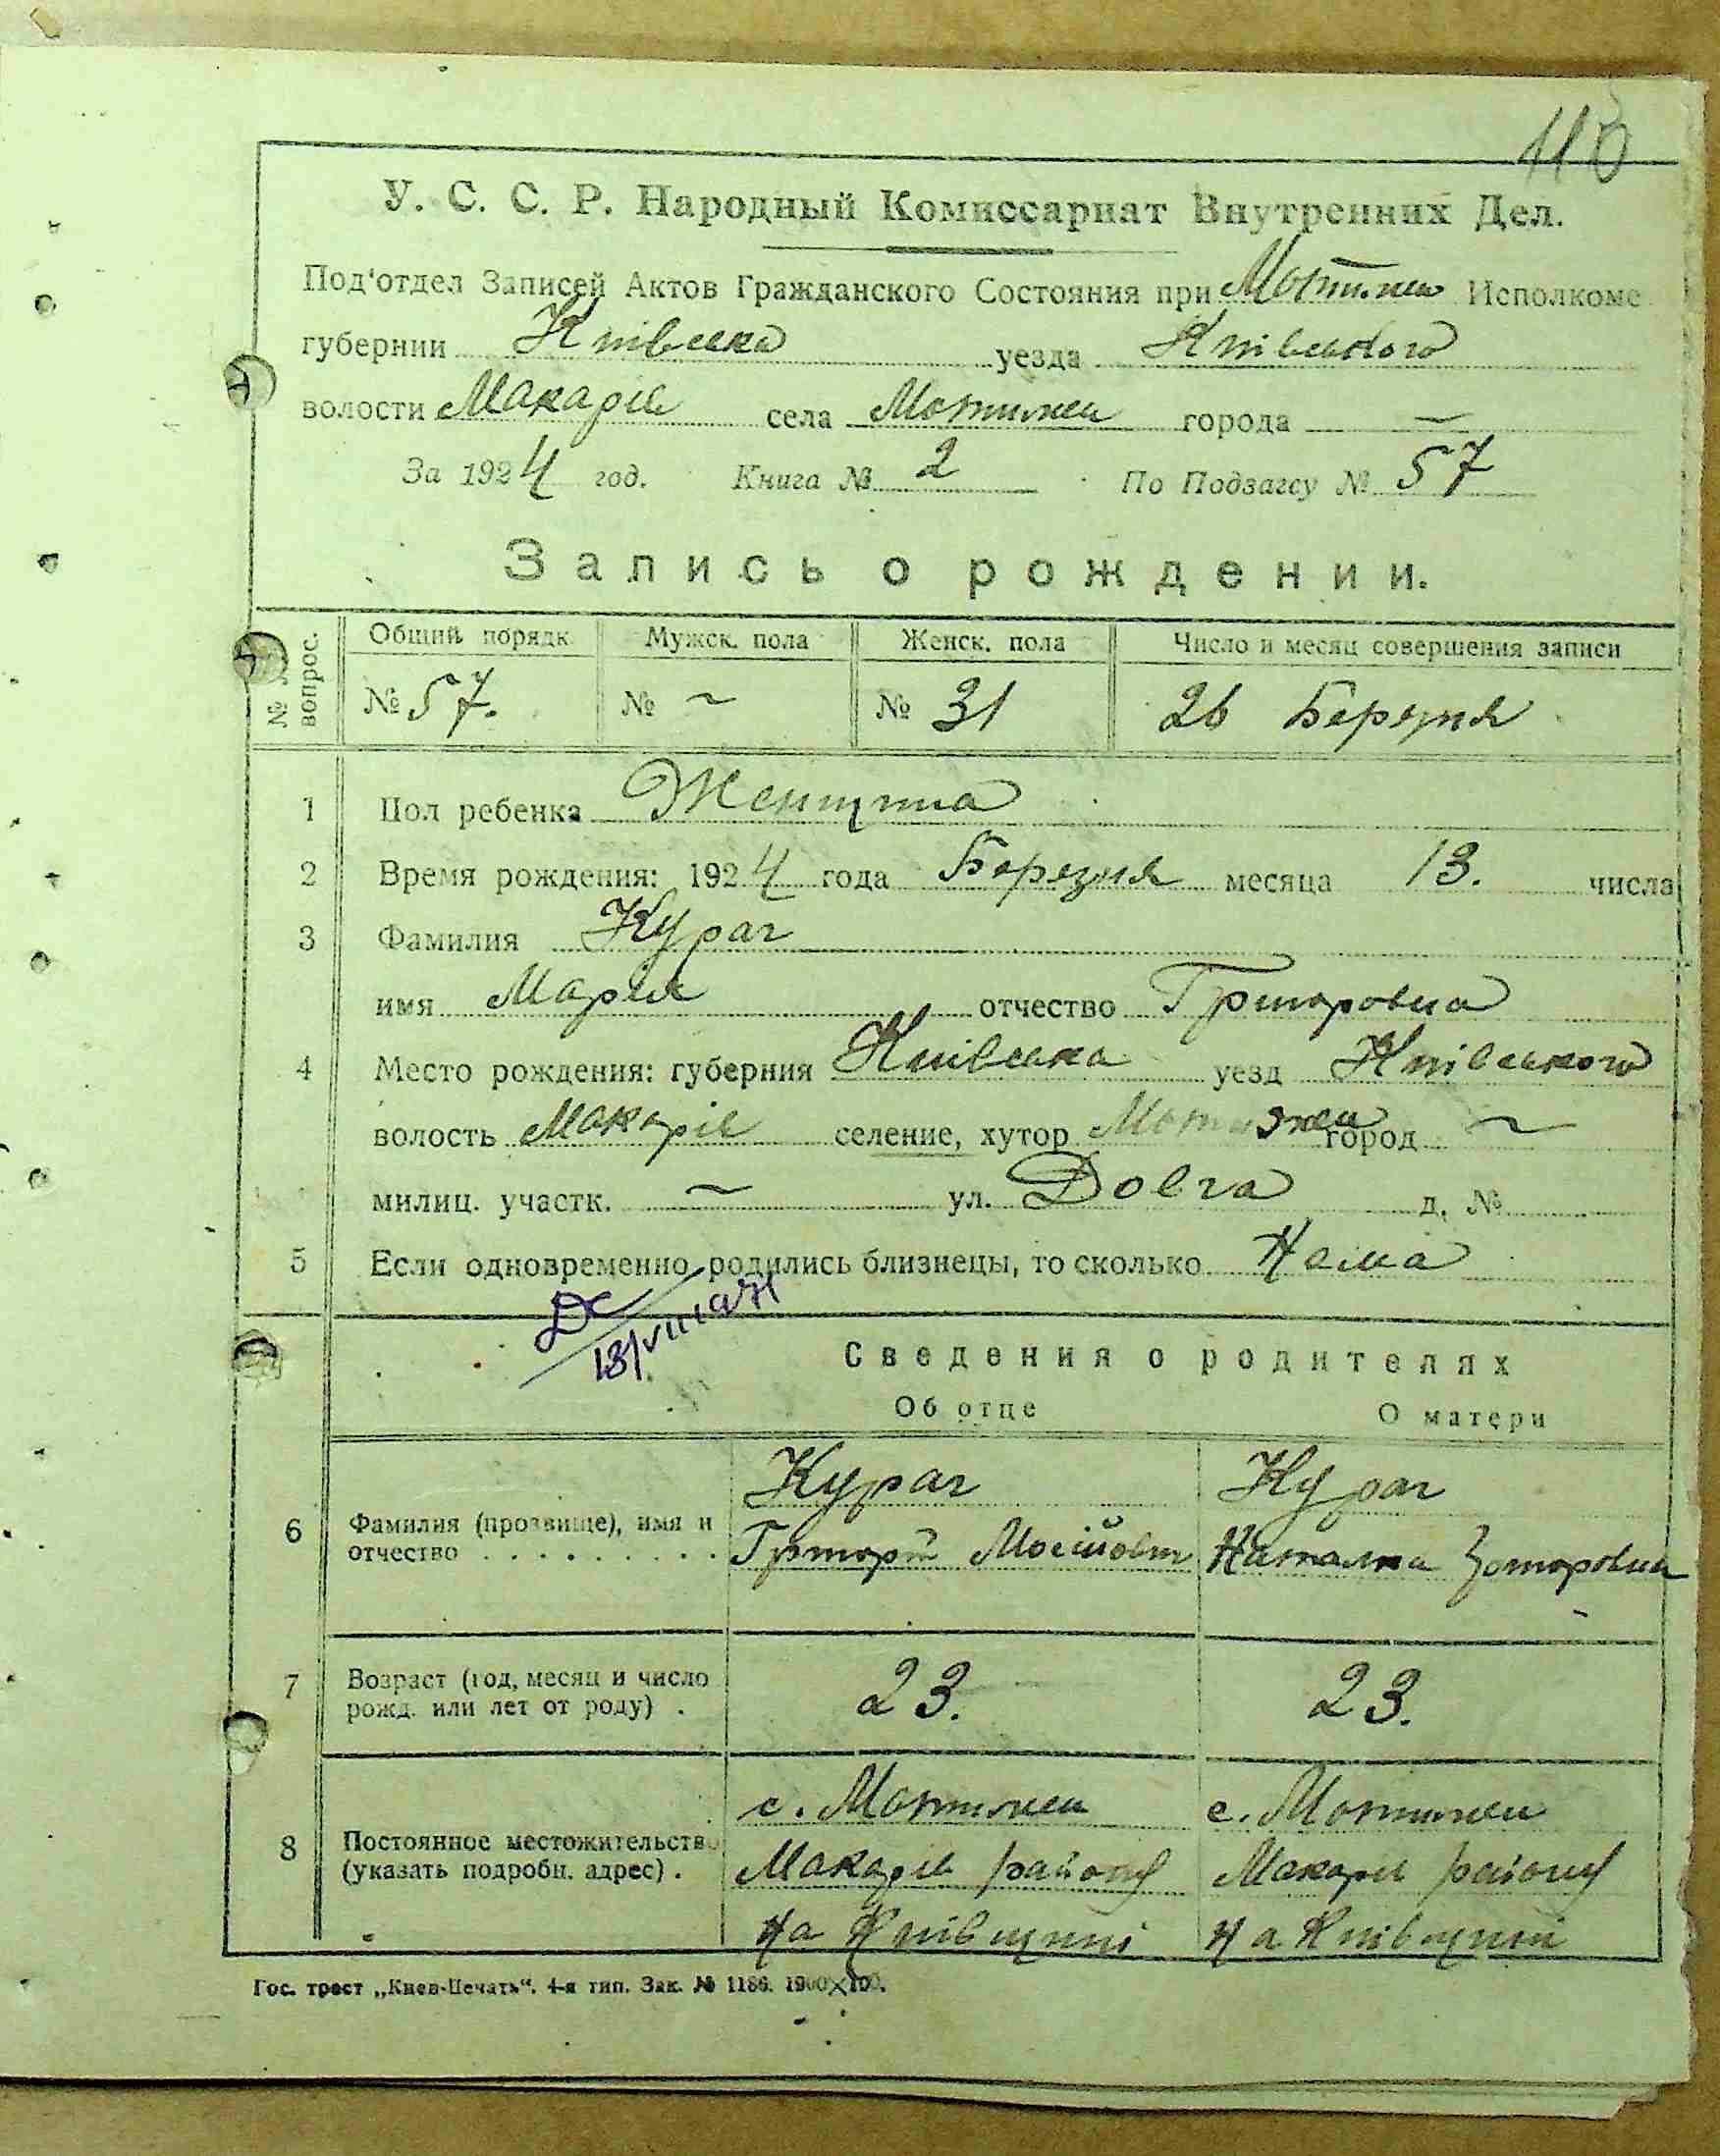 У. С. С. Р. Народный Комиссариат Внутренних Дел.
Под'отдел Записей Актов Гражданского Состояния при Мотижен Исполкоме
губернии Київська уезда Київського
волости Макарів села Мотижен города —
За 1924 год. Книга № 2 По Подзагсу № 57
Запись о рождении.
№ вопрос. Общий порядк Мужск. пола Женск. пола Число и месяц совершения записи
№ 57. № ~ № 31 26 Березня
1 Пол ребенка Женщина
2 Время рождения: 1924 года Березня месяца 13. числа
3 Фамилия Курач
имя Марія отчество Григоровна
4 Место рождения: губерния Київська уезд Київського
волость Макарів селение, хутор Мотижен город ~
милиц. участк. ~ ул. Довга д. №
5 Если одновременно родились близнецы, то сколько Нема
13/VIII 1971
Сведения о родителях
Об отце О матери
Курач Курач
6 Фамилия (прозвище), имя и отчество . . . . . . . . . . Григорій Мосійович Наталка
7 Возраст (год, месяц и число рожд. или лет от роду) . 23. 23.
с. Мотижен с. Мотижен
8 Постоянное местожительство (указать подробн. адрес) . Макарів району Макарів району
на Київщині на Київщині
Гос. трест „Киев-Печать“. 4-я тип. Зак. № 1186.